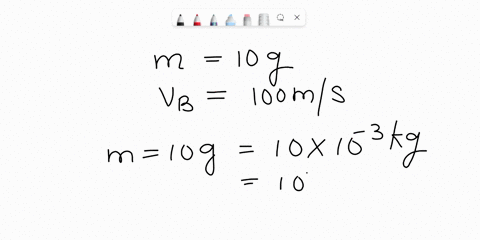 m = 10g
V_B = 100m/s
m = 10g = 10×10⁻³kg
= 10